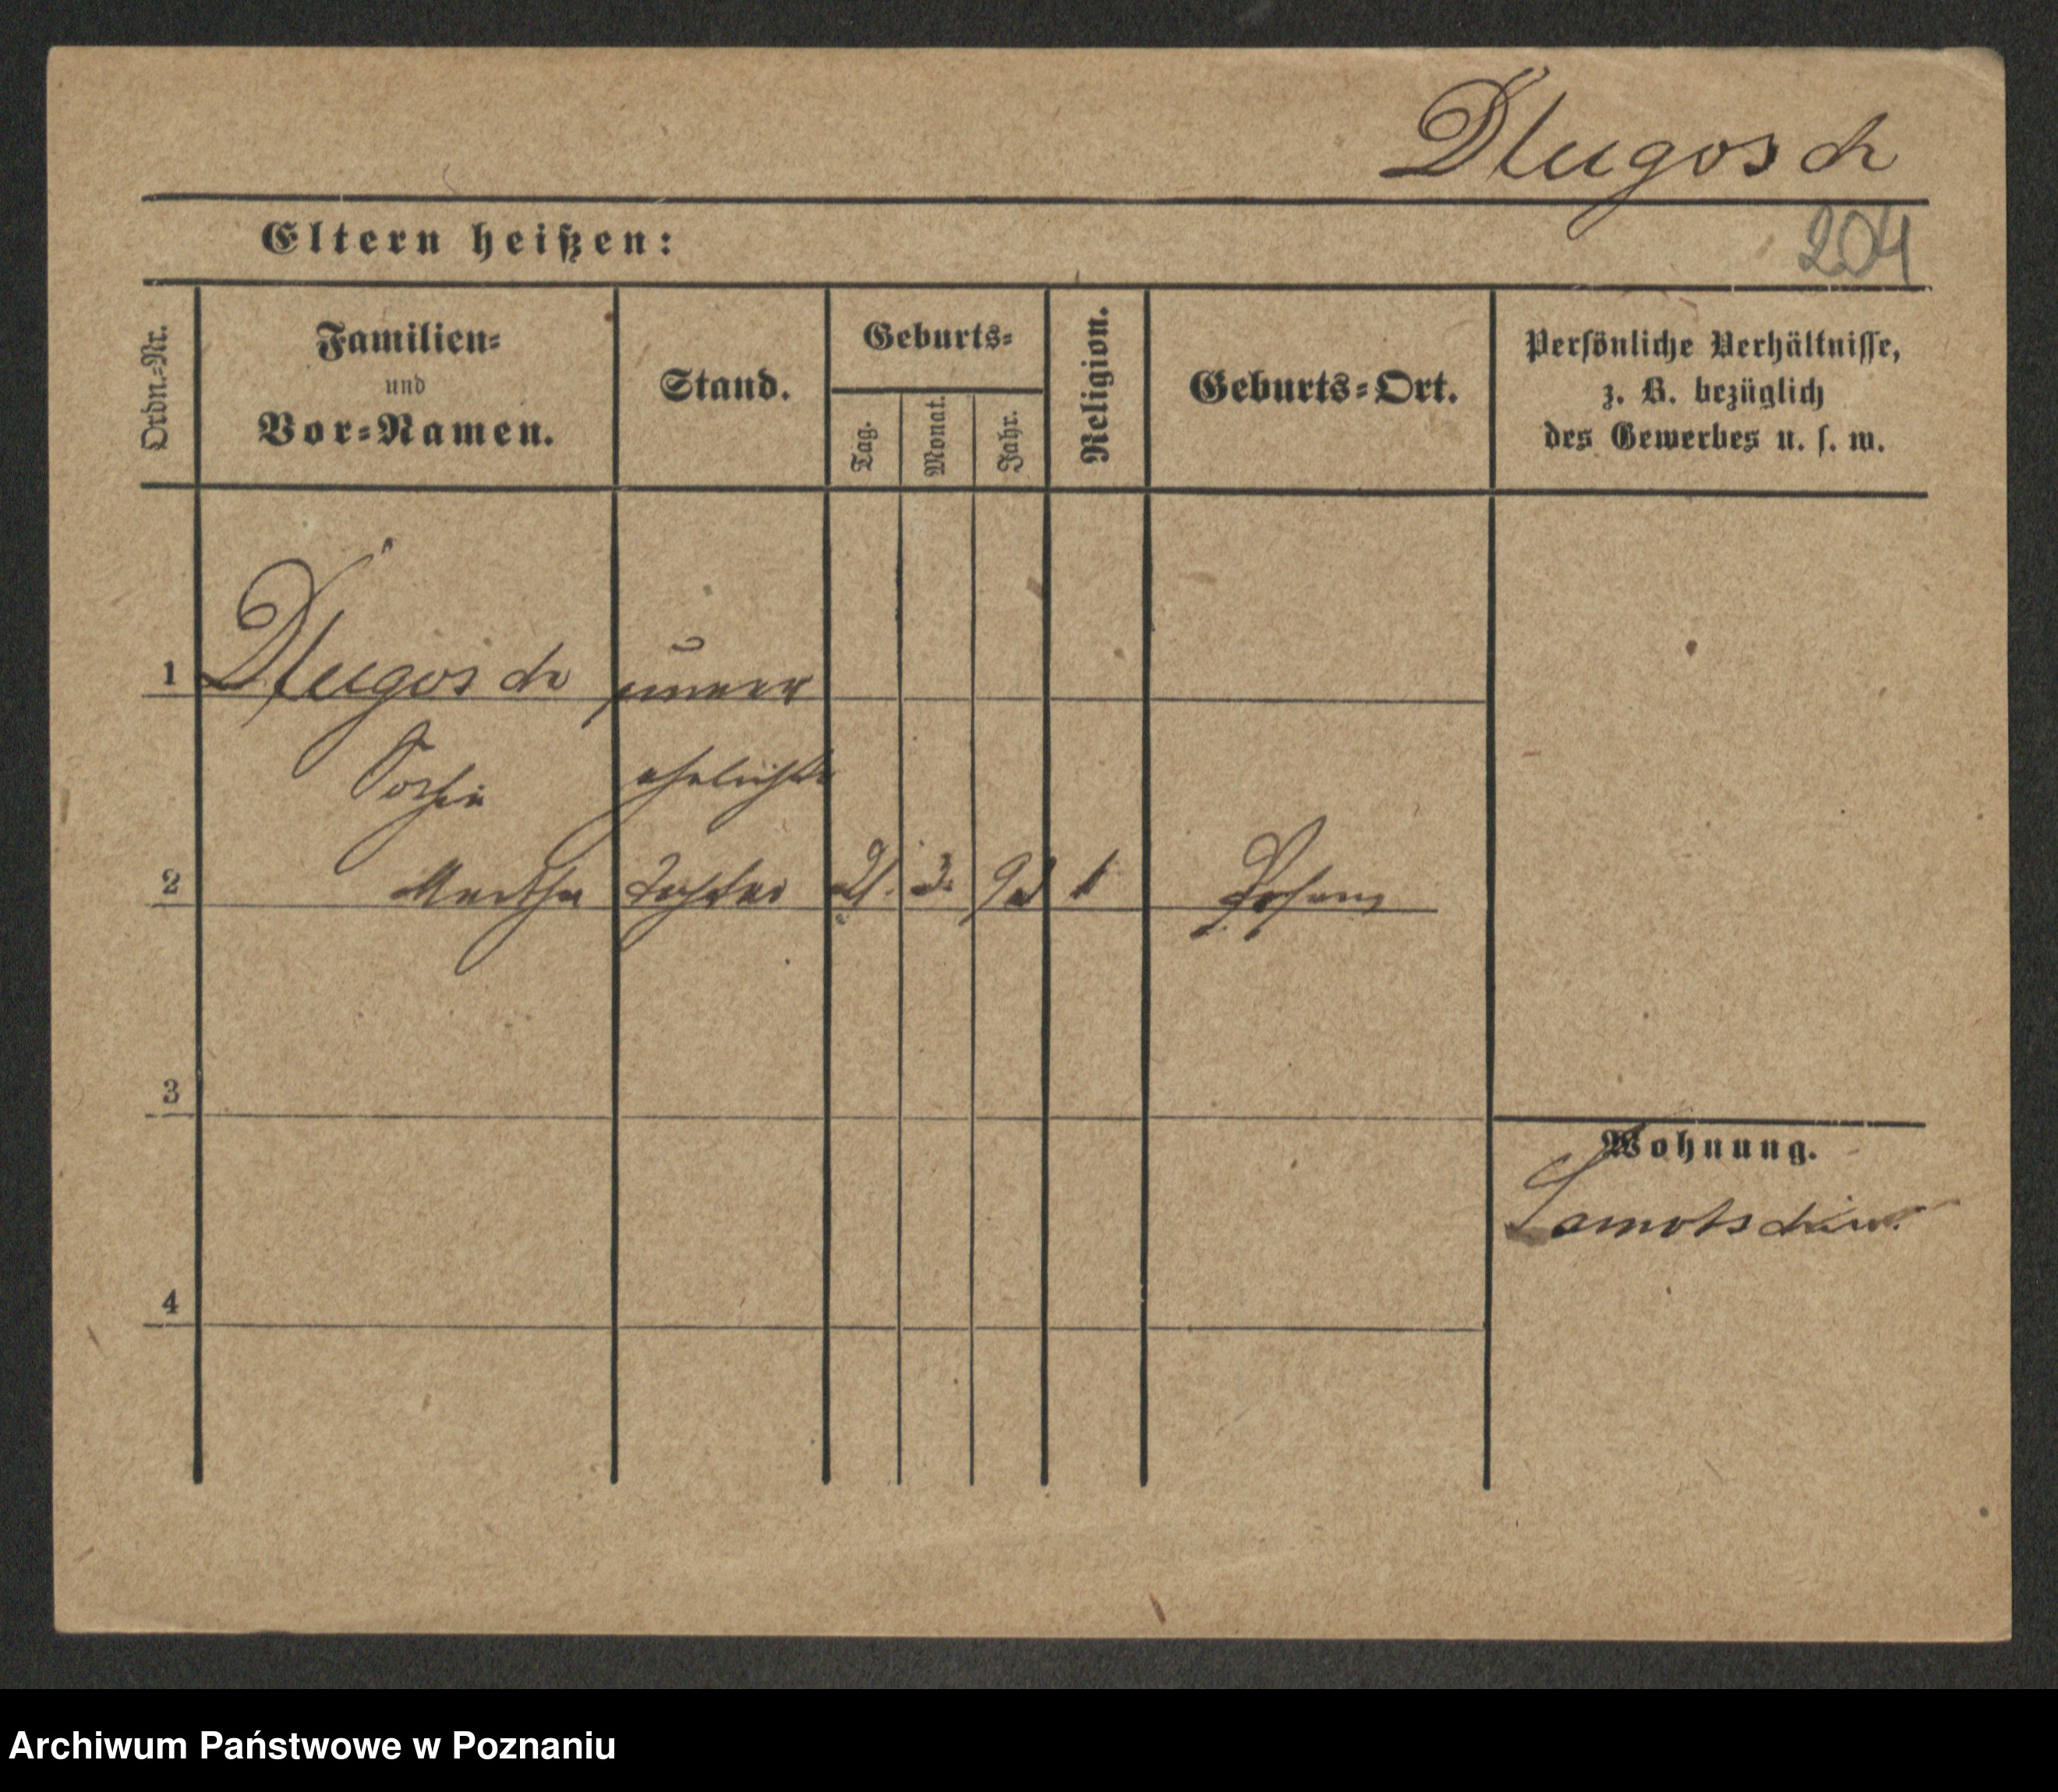 Dlugosch
Eltern heißen:
204
Ordn.-Nr.
Familien-
und
Vor-Namen.
Stand.
Geburts-
Tag.
Monat.
Jahr.
Religion.
Geburts-Ort.
Persönliche Verhältnisse,
z. B. bezüglich
des Gewerbes u. s. w.
1 Dlugosch
2 Martha Tochter 21. 3. Posen
3
Wohnung.
Samotschin.
4
Archiwum Państwowe w Poznaniu